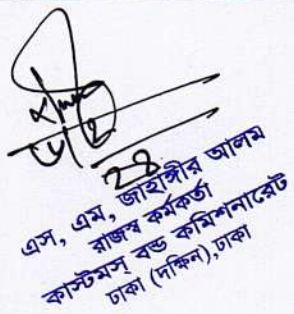 28
এস, এম, জাহাঙ্গীর আলম
রাজস্ব কর্মকর্তা
কাস্টমস্ বন্ড কমিশনারেট
ঢাকা (দক্ষিন), ঢাকা